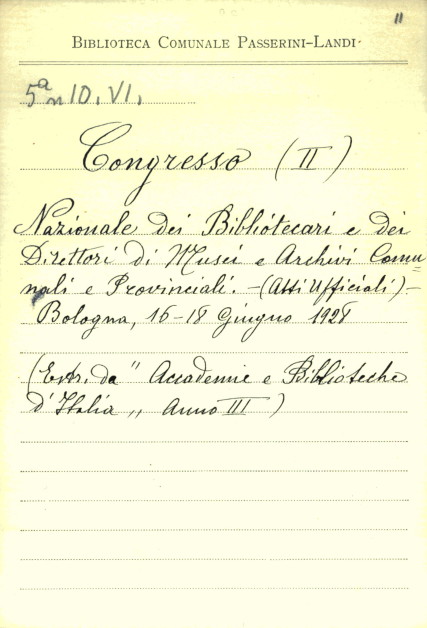 11
BIBLIOTECA COMUNALE PASSERINI-LANDI
5ª n 10. VI.
Congresso (II)
Nazionale dei Bibliotecari e dei
Direttori di Musei e Archivi Comu=
nali e Provinciali. - (Atti Ufficiali) -
Bologna, 16-18 Giugno 1928
(Estr. da " Accademie e Biblioteche
d'Italia „ Anno III )